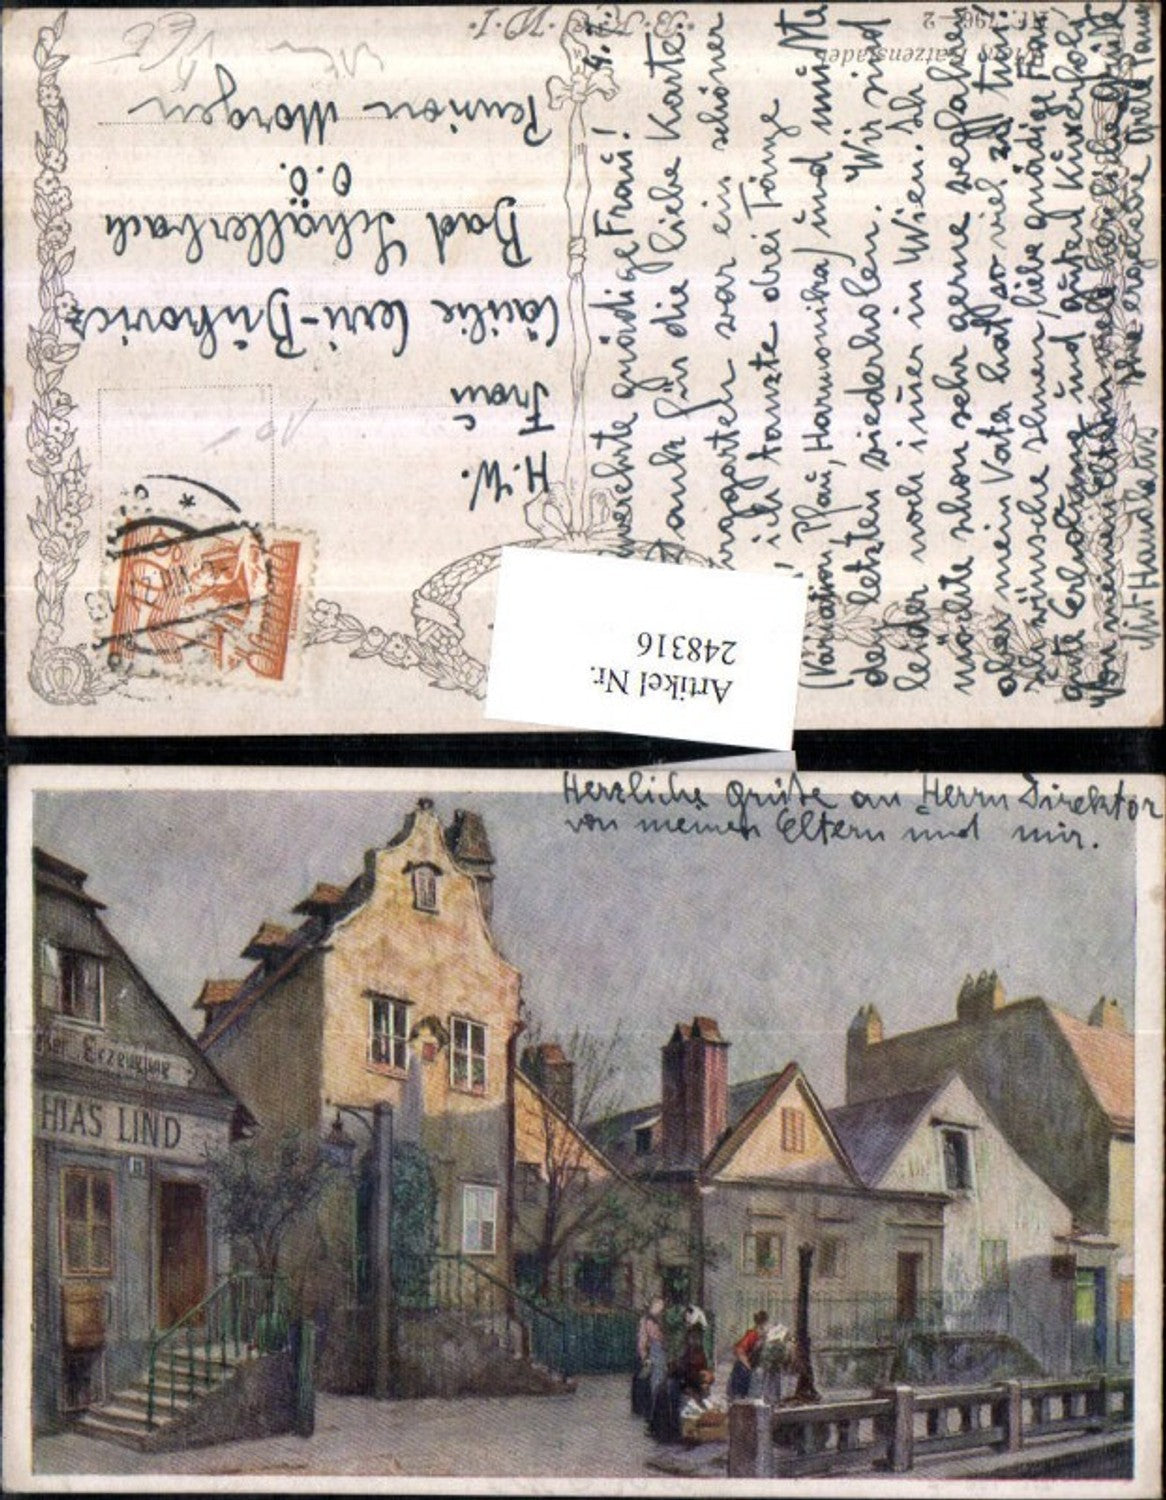 B.K.W.I.
Nr. 798-2
Wien, Katzensteder
H. W.
Frau
Cäcilie Cerri-Dukovicz
Bad Schallerbach
O.Ö.
Pension Morgen
verehrte gnädige Frau!
Dank für die liebe Karte
war ein schöner
ich tanzte drei Tänze
(Variation, Pfau, Harmonika) und mußte
den letzten wiederholen. Wir sind
leider noch immer in Wien. Ich
möchte schon sehr gerne wegfahren
aber mein Vater hat so viel zu tun.
Ich wünsche Ihnen, liebe gnädige Frau
gute Erholung und guten Kurerfolg.
Von meinen Eltern viele herzliche Grüße
Mit Handkuss Ihre ergebene
Artikel Nr.
248316
Herzliche Grüße an Herrn Direktor
von meinen Eltern und mir.
Erzeugung
HIAS LIND